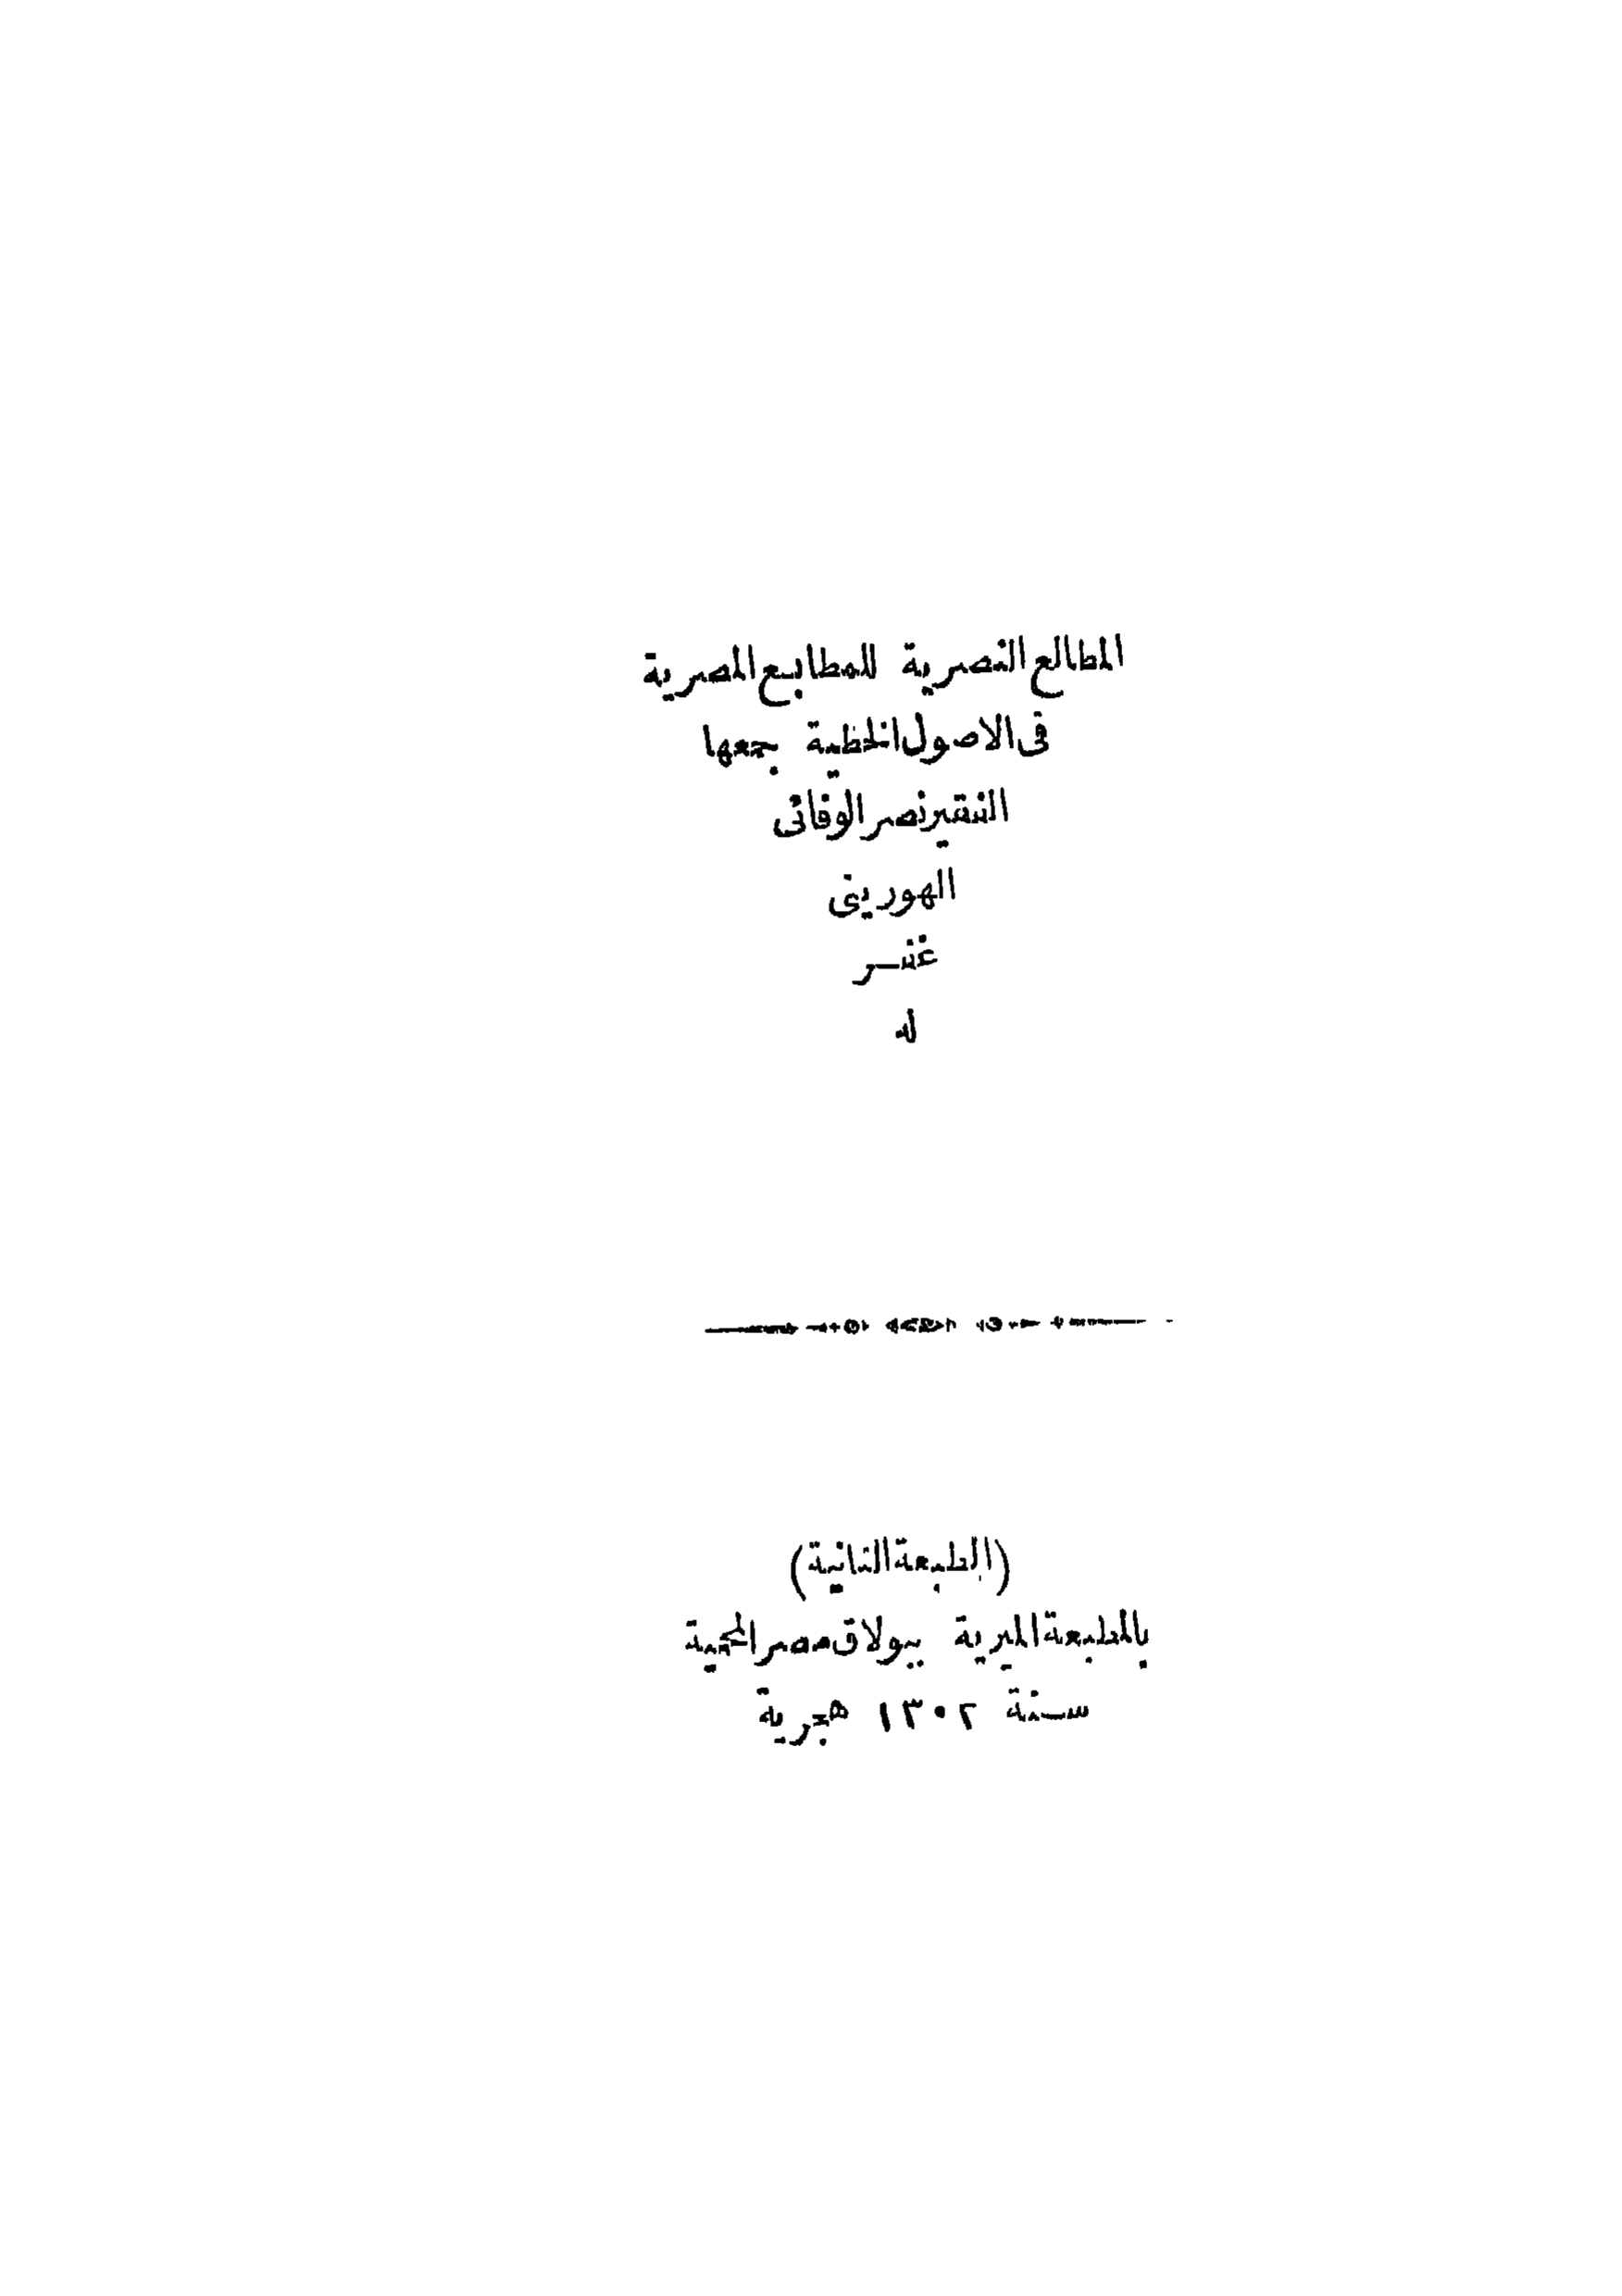 المطالع النصرية للمطابع المصرية
فى الاصول الخطية جمعها
الفقير نصر الوفائى
الهورينى
غفر
له
(الطبعة الثانية)
بالمطبعة الميرية ببولاق مصر المحمية
سنة ١٣٠٢ هجرية